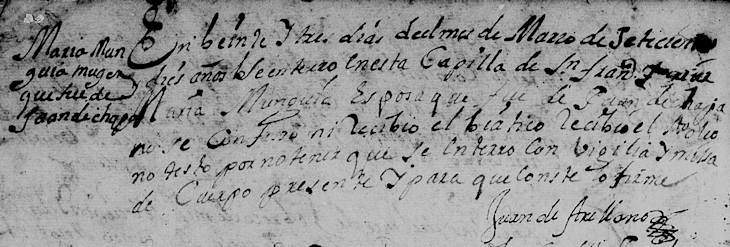 Maria Mun
guia muger
que fue de
Juan de chapa
En beinte y tres dias del mes de Marzo de setecientos
y diés años se enterro en esta Capilla de Sn. Fran.co
Maria Munguia Esposa que fue de Juan de chapa
no se confeso ni Recibio el biatico Recibio el olio
no desto por no tener que se Enterro Con Vigilia y misa
de Cuerpo presente y para que Conste lo firme
Juan de Arellano